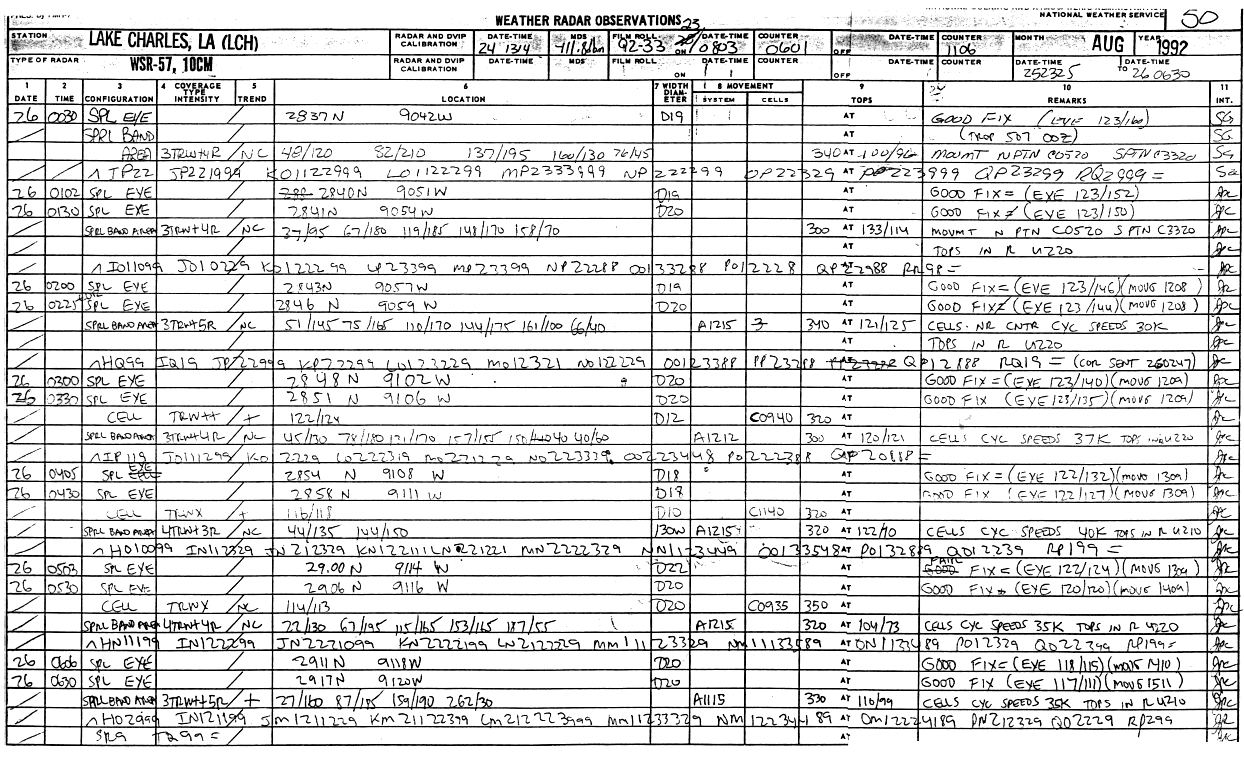 WEATHER RADAR OBSERVATIONS
NATIONAL WEATHER SERVICE 50
STATION LAKE CHARLES, LA (LCH) RADAR AND DVIP CALIBRATION DATE-TIME 24 1314 MDS FILM ROLL 92-33 ON DATE-TIME 23/0803 COUNTER 0601 OFF DATE-TIME COUNTER 1106 MONTH AUG YEAR 1992
TYPE OF RADAR WSR-57, 10CM RADAR AND DVIP CALIBRATION DATE-TIME MDS FILM ROLL ON DATE-TIME COUNTER OFF DATE-TIME COUNTER DATE-TIME 252325 TO DATE-TIME 260630
1 DATE 2 TIME 3 CONFIGURATION 4 COVERAGE TYPE INTENSITY 5 TREND 6 LOCATION 7 WIDTH DIAMETER 8 MOVEMENT SYSTEM CELLS 9 TOPS 10 REMARKS 11 INT.
26 0030 SPL EYE 2837N 9042W D19 AT GOOD FIX (EYE 123/160) SG
SPRL BAND AT (TROP 507 00Z) SG
AREA 3TRW+4R / NC 48/120 82/210 137/195 160/130 76/45 340 AT 100/96 MOVMT N PTN C0520 S PTN C3320 SG
^JP22 JP221999 KO1122999 LO1122299 MP2333999 NP222299 OP22329 AT PP223999 QP23299 RQ2999=
26 0102 SPL EYE 2840N 9051W D19 AT GOOD FIX= (EYE 123/152)
26 0130 SPL EYE 2841N 9054W D20 AT GOOD FIX (EYE 123/150)
SPRL BAND AREA 3TRW+4R / NC 37/95 67/180 119/185 148/170 158/70 300 AT 133/114 MOVMT N PTN C0520 S PTN C3320
AT TOPS IN R U220
^IO11099 JO10229 KO122299 LP23399 MP23399 NP22288 OO133288 PO12228 QP22988 RR98=
26 0200 SPL EYE 2843N 9057W D19 AT GOOD FIX= (EYE 123/146)(MOVG 1208)
26 0225 SPL EYE 2846 N 9059 W D20 AT GOOD FIX (EYE 123/144)(MOVG 1208)
SPRL BAND AREA 3TRW+5R / NC 51/145 75/165 110/170 144/175 161/100 66/40 A1215 340 AT 121/125 CELLS NR CNTR CYC SPEEDS 30K
AT TOPS IN R U220
^HQ99 IQ19 JP22999 KP22299 LO122229 MO12321 NO122229 OO123388 PP23288 QP12888 RQ19= (COR SENT 260247)
26 0300 SPL EYE 2848N 9102W D20 AT GOOD FIX= (EYE 123/140)(MOVG 1209)
26 0330 SPL EYE 2851 N 9106 W D20 AT GOOD FIX (EYE 123/135)(MOVG 1209)
CELL TRW++ / + 122/124 D12 C0940 320 AT
SPRL BAND AREA 3TRW+4R / NC 45/130 78/180 131/170 157/155 40/60 A1212 300 AT 120/121 CELLS CYC SPEEDS 37K TOPS IN R U220
^IP119 JO111299 LO222319 NO223329 OO223448 PO222388 QP20888=
26 0405 SPL EYE 2854 N 9108 W D18 AT GOOD FIX= (EYE 122/132)(MOVG 1309)
26 0430 SPL EYE 2858 N 9111 W D18 AT GOOD FIX (EYE 122/127)(MOVG 1309)
CELL TRWX + 116/118 D10 C1140 320 AT
SPRL BAND AREA 4TRW+3R / NC 44/135 144/150 130W A1215 320 AT 122/10 CELLS CYC SPEEDS 40K TOPS IN R U210
^HO10099 IN112329 JN212329 KN122111 LN221221 MN2222329 NN1123449 OO133548 AT PO132889 QO12239 RP199=
26 0503 SPL EYE 29.00 N 9114 W D22 AT FAIR FIX= (EYE 122/124)(MOVG 1309)
26 0530 SPL EYE 2906 N 9116 W D20 AT GOOD FIX (EYE 120/120)(MOVG 1409)
CELL TRWX / NC 114/113 D20 C0935 350 AT
SPRL BAND AREA 4TRW+4R / NC 22/130 67/195 115/165 153/165 187/55 A1215 320 AT 104/73 CELLS CYC SPEEDS 35K TOPS IN R U220
^HN11199 IN122299 JN2221099 KN2222199 LN2122229 MM111223329 NM11133589 AT ON1123489 PO12329 QO22399 RP199=
26 0606 SPL EYE 2911 N 9118W D20 AT GOOD FIX= (EYE 118/115)(MOVG 1410)
26 0630 SPL EYE 2917N 9120W D20 AT GOOD FIX (EYE 117/111)(MOVG 1511)
SPRL BAND AREA 3TRW+5R / + 27/160 87/195 159/190 262/30 A1115 330 AT 110/99 CELLS CYC SPEEDS 35K TOPS IN R U210
^HO2999 IN121199 JM1211229 KM21122379 LM212223999 MM11233329 NM122344189 AT OM12224189 PN212329 QO2229 RP299
AT